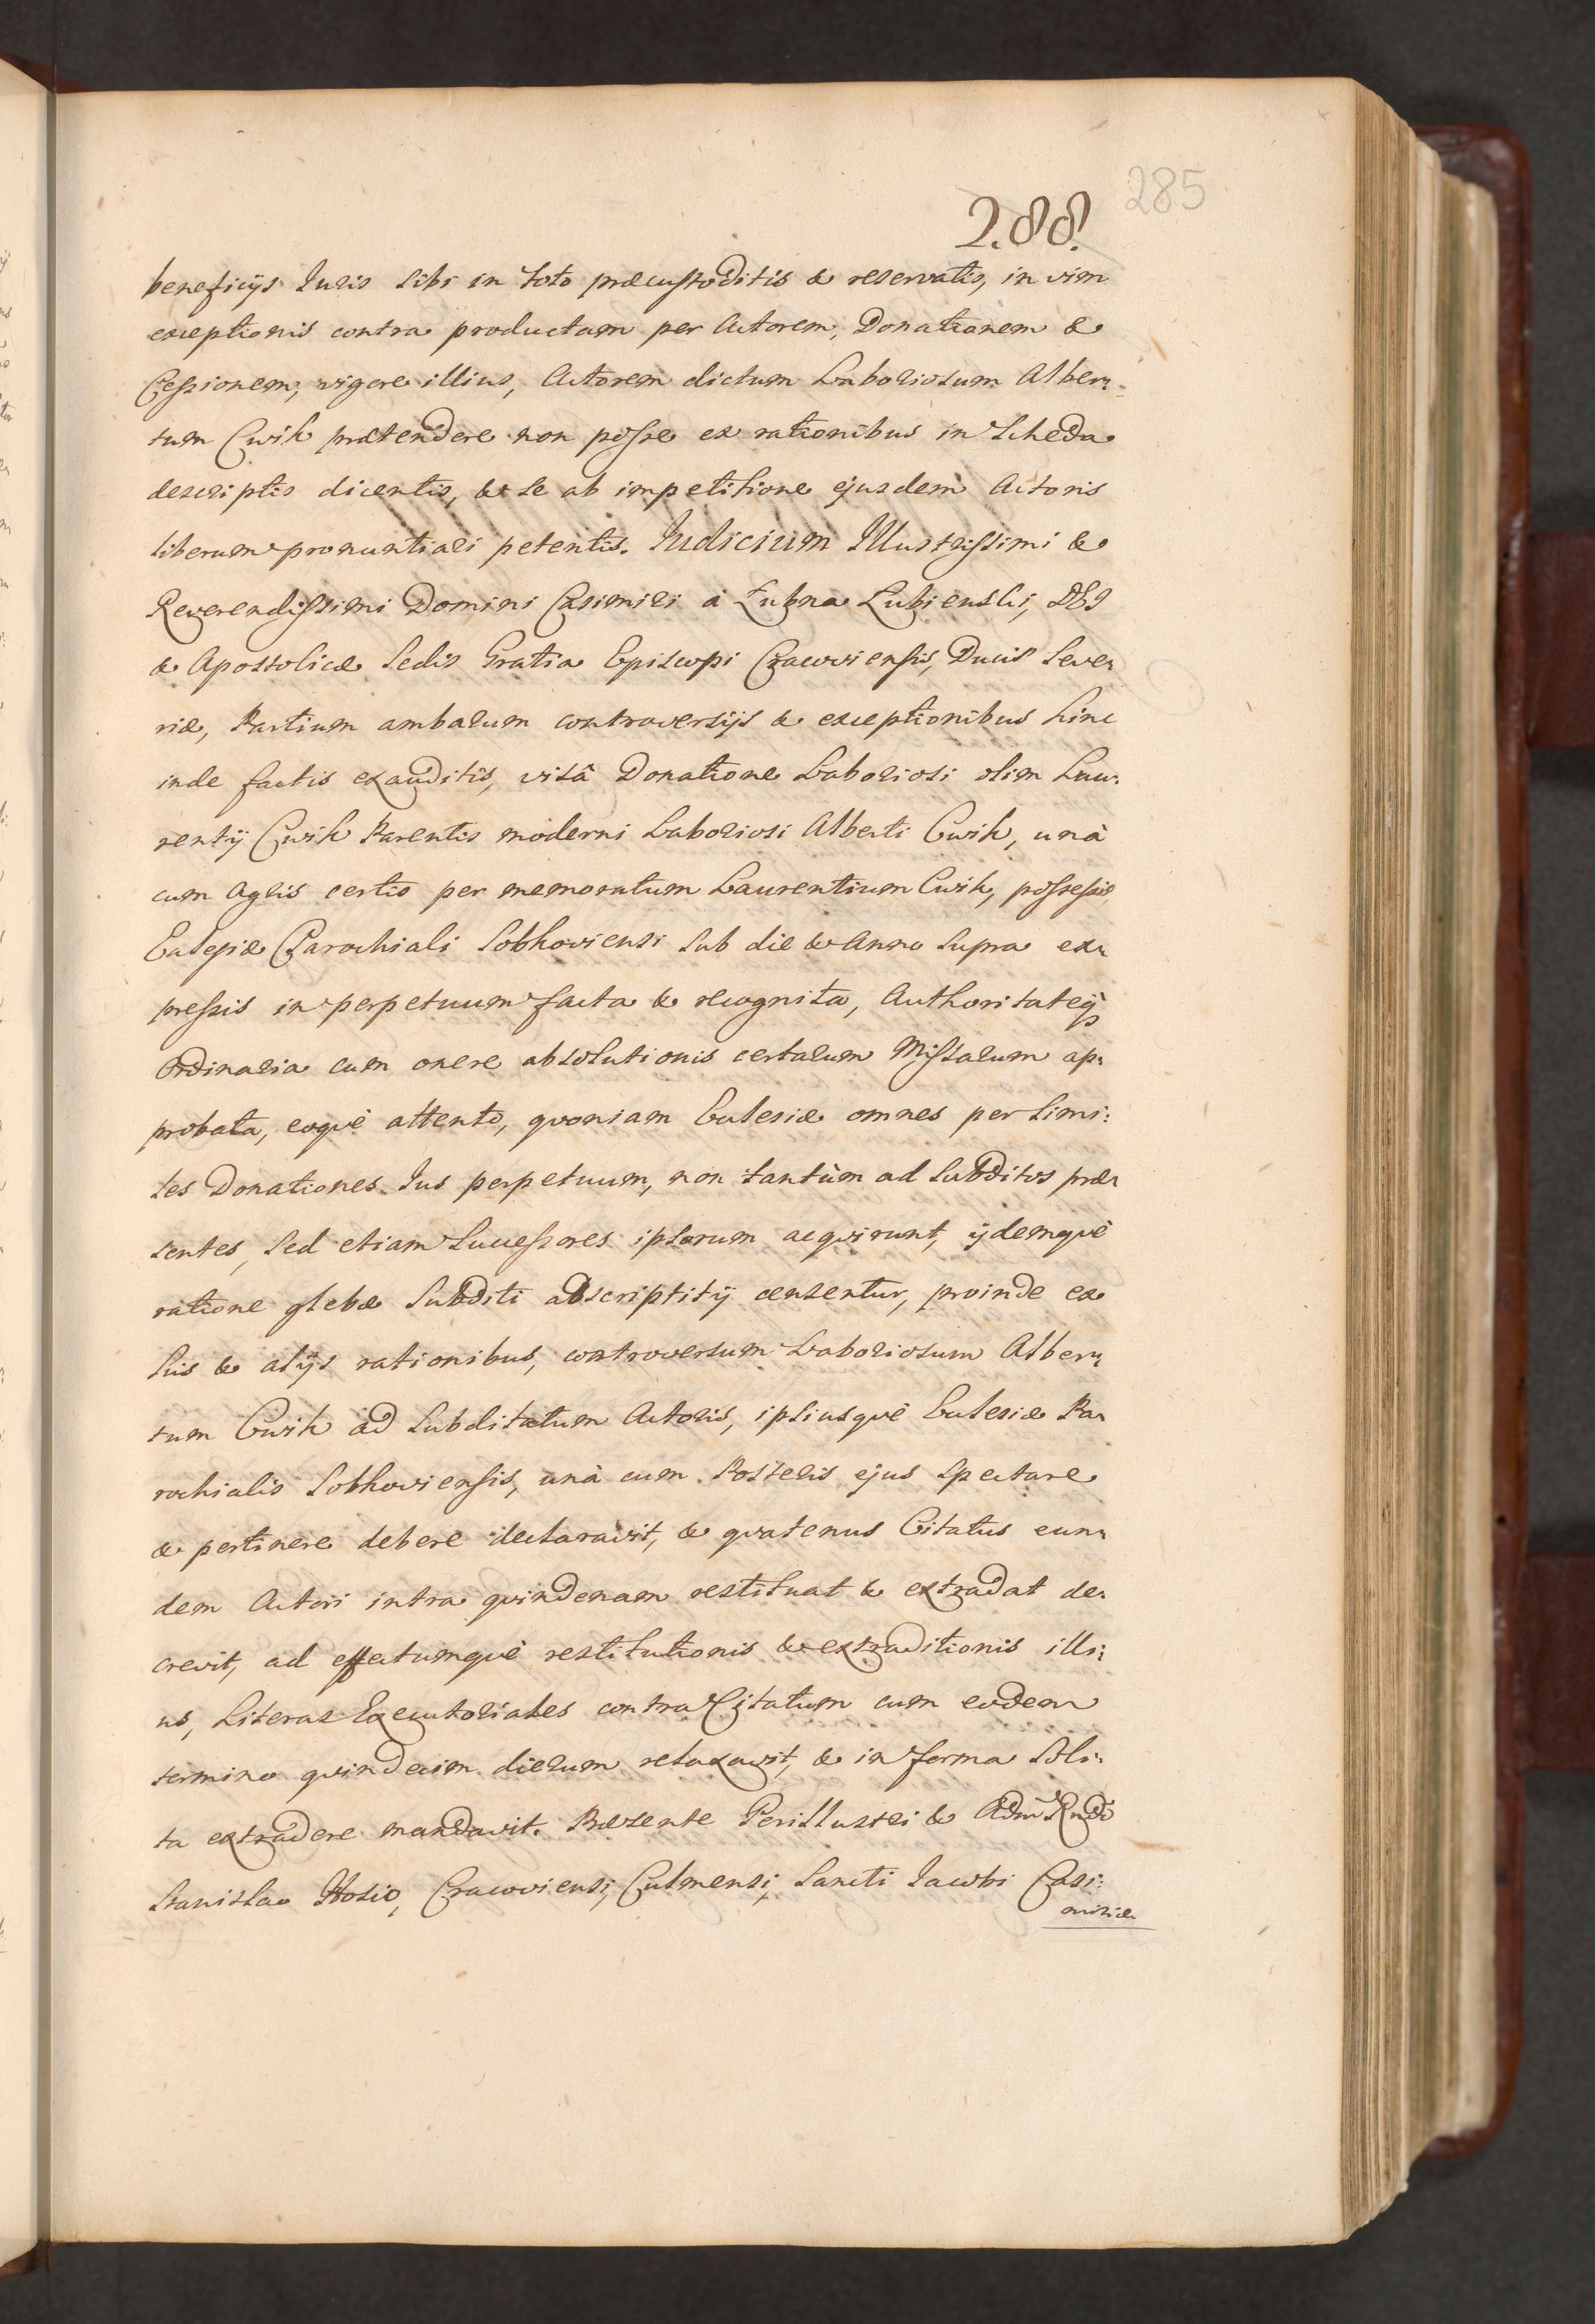 285
288.
beneficijs Iuris sibi in toto præcustoditis & reservatis, in vim
exceptionis contra productam per Actorem, Donationem &
Cessionem, vigore illius, Actorem dictum Laboriosum Alber:
tum Cwik prætendere non posse ex rationibus in Scheda
descriptis dicentis, & se ab impetitione ejusdem Actoris
liberum pronuntiari petentis. Iudicium Illustrissimi &
Reverendissimi Domini Casimiri à Łubna Łubienski, DEI
& Apostolicæ Sedis Gratia Episcopi Cracoviensis, Ducis Seve:
riæ, Partium ambarum controversijs & exceptionibus hinc
inde factis exauditis, visâ Donatione Laboriosi olim Lau:
rentij Cwik Parentis moderni Laboriosi Alberti Cwik, unà
cum Agris certis per memoratum Laurentium Cwik, possessis
Eclesiæ Parochiali Sobkoviensi sub die & Anno supra ex:
pressis in perpetuum facta & recognita, Authoritateq;
Ordinaria cum onere absolutionis certarum Missarum ap:
probata, eoquè attento, qvoniam Eclesiæ omnes per simi:
les Donationes Ius perpetuum, non tantùm ad Subditos præ:
sentes, sed etiam Successores ipsorum acqvirunt, ijdemquè
ratione glebæ Subditi adscriptitij censentur, proinde ex
his & alijs rationibus, controversum Laboriosum Alber:
tum Cwik ad Subditatum Actoris, ipsiusquè Eclesiæ Pa:
rochialis Sobkoviensis, unà cum Posteris ejus spectare
& pertinere debere declaravit, & qvatenus Citatus eun:
dem Actori intra qvindenam restituat & extradat de:
crevit, ad effectumquè restitutionis & extraditionis illi:
us, Literas Executoriales contra Citatum cum eodem
termino qvindecim dierum relaxavit, & in forma soli:
ta extradere mandavit. Præsente Perillustri & Adm Rndo
Stanislao Hosio, Cracoviensi, Culmensi, Sancti Iacobi Casi:
miriæ